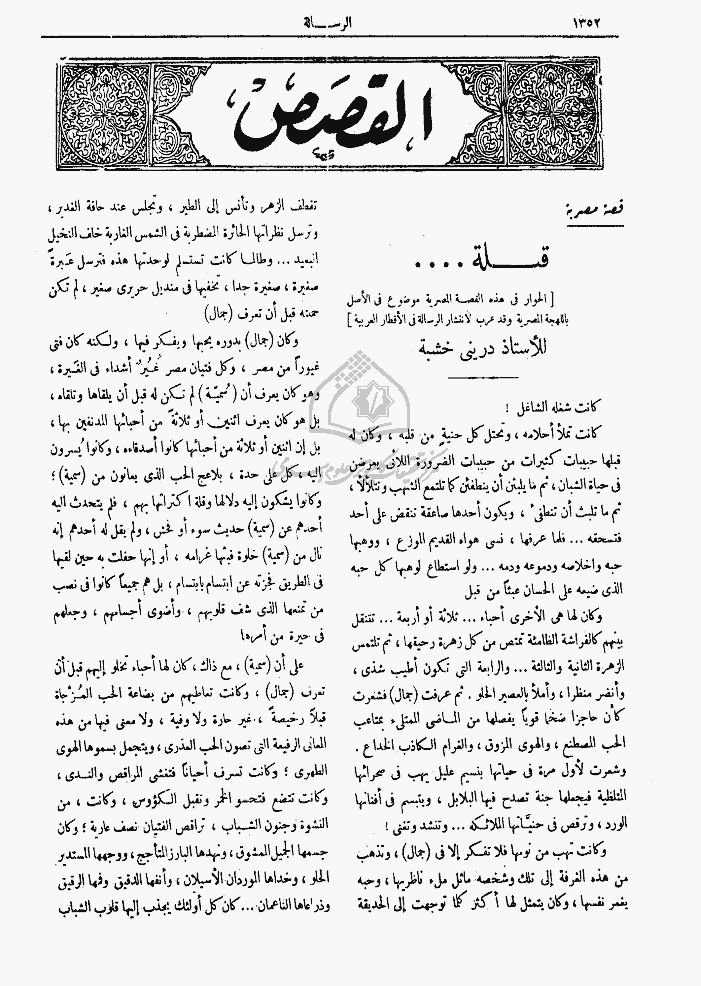 ١٣٥٢
الرســالة
القصص
قصة مصرية
قبــلة ....
[ الحوار فى هذه القصة المصرية موضوع فى الأصل
باللهجة المصرية وقد عرب لانتشار الرسالة فى الأقطار العربية ]
للأستاذ دريني خشبة
كانت شغله الشاغل !
كانت تملأ أحلامه ، وتحتل كل حنية من قلبه ، وكان له
قبلها حبيبات كثيرات من حبيبات الضرورة اللائى يعرضن
فى حياة الشبان ، ثم ما يلبثن أن ينطفئن كما تلتمع الشهب وتتلألأ ،
ثم ما تلبث أن تنطفئ ، ويكون أحدها صاعقة تنقض على أحد
فتسحقه ... فلما عرفها ، نسى هواه القديم الموزع ، ووهبها
حبه واخلاصه ودموعه ودمه ... ولو استطاع لوهبها كل حبه
الذى ضيعه على الحسان عبثاً من قبل
وكان لها هى الأخرى أحباء ... ثلاثة أو أربعة ... تتنقل
بينهم كالفراشة الظامئة تمتص من كل زهرة رحيقها ، ثم تلتمس
الزهرة الثانية والثالثة ... والرابعة التى تكون أطيب شذى ،
وأنضر منظرا ، وأملأ بالعصير الحلو . ثم عرفت (جمال) فشعرت
كأن حاجزا ضخما قويا يفصلها من الماضى الممتلىء بمتاعب
الحب المصطنع ، والهوى المزوق ، والغرام الكاذب الخداع .
وشعرت لأول مرة فى حياتها بنسيم عليل يهب فى صحرائها
المتلظية فيجعلها جنة تصدح فيها البلابل ، ويتبسم فى أفنانها
الورد ، وترقص فى حنيَّاتها الملائكة ... وتنشد وتغنى !
وكانت تهب من نومها فلا تفكر إلا فى (جمال) ، وتذهب
من هذه الغرفة إلى تلك وشخصه ماثل ملء ناظريها ، وحبه
يغمر نفسها ، وكان يتمثل لها أكثر كلما توجهت إلى الحديقة
تقطف الزهر وتأنس إلى الطير ، وتجلس عند حافة الغدير ،
وترسل نظراتها الحائرة المضطربة فى الشمس الغاربة خلف النخيل
البعيد ... وطالما كانت تستسلم لوحدتها هذه فترسل عَبرةً
صغيرة ، صغيرة جدا ، تخفيها فى منديل حريرى صغير ، لم تكن
حملته قبل أن تعرف (جمال)
وكان (جمال) بدوره يحبها ويفكر فيها ، ولكنه كان فتى
غيوراً من مصر ، وكل فتيان مصر غُيُرٌ أشداء فى الغيرة ،
وهو كان يعرف أن (سُميّة) لم تكن له قبل أن يلقاها وتلقاه ،
بل هو كان يعرف اثنين أو ثلاثة من أحبائها المدنفين بها ،
بل إن اثنين أو ثلاثة من أحبائها كانوا أصدقاءه ، وكانوا يُسرون
إليه ، كل على حدة ، بلاعج الحب الذى يعانون من (سمية) ؛
وكانوا يشكون إليه دلالها وقلة اكتراثها بهم ، فلم يتحدث اليه
أحدهم عن (سمية) حديث سوء أو فحش ، ولم يقل له أحدهم إنه
نال من (سمية) خلوة فبثها غرامه ، أو إنها حفلت به حين لقيها
فى الطريق فجزته عن ابتسام بابتسام ، بل هم جميعاً كانوا فى نصب
من تمنعها الذى شف قلوبهم ، وأضوى أجسامهم ، وجعلهم
فى حيرة من أمرها
على أن (سمية) ، مع ذاك ، كان لها أحباء تخلو إليهم قبل أن
تعرف (جمال) ، وكانت تعاطيهم من بضاعة الحب المُزجاة
قبلاً رخيصةً ، غير حارة ولا وفية ، ولا معنى فيها من هذه
المعانى الرفيعة التى تصون الحب العذرى ، ويتجمل بسموها الهوى
الطهرى ؛ وكانت تسرف أحياناً فتغشى المراقص والنـدى ،
وكانت تتضع فتحسو الخمر وتقبل الكؤوس ، وكانت ، من
النشوة وجنون الشباب ، تراقص الفتيان نصف عارية ؛ وكان
جسمها الجميل الممشوق ، ونهدها البارز المتأجج ، ووجهها المستدير
الحلو ، وخداها الموردان الأسيلان ، وأنفها الدقيق وفمها الرقيق
وذراعاها الناعمان ... كان كل أولئك يجذب إليها قلوب الشباب